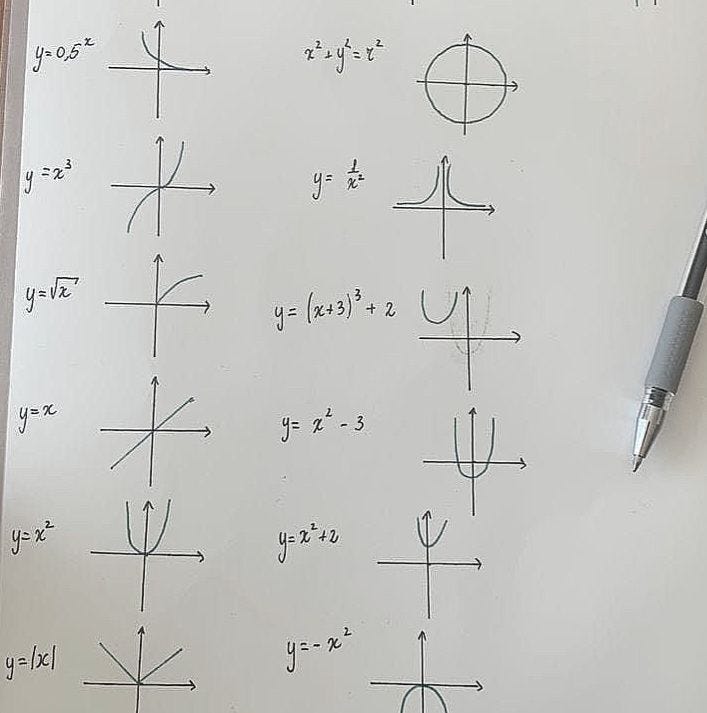 y=0,5^x
x²+y²=r²
y=x³
y=1/x²
y=√x
y=(x+3)³+2
y=x
y=x²-3
y=x²
y=x²+2
y=|x|
y=-x²